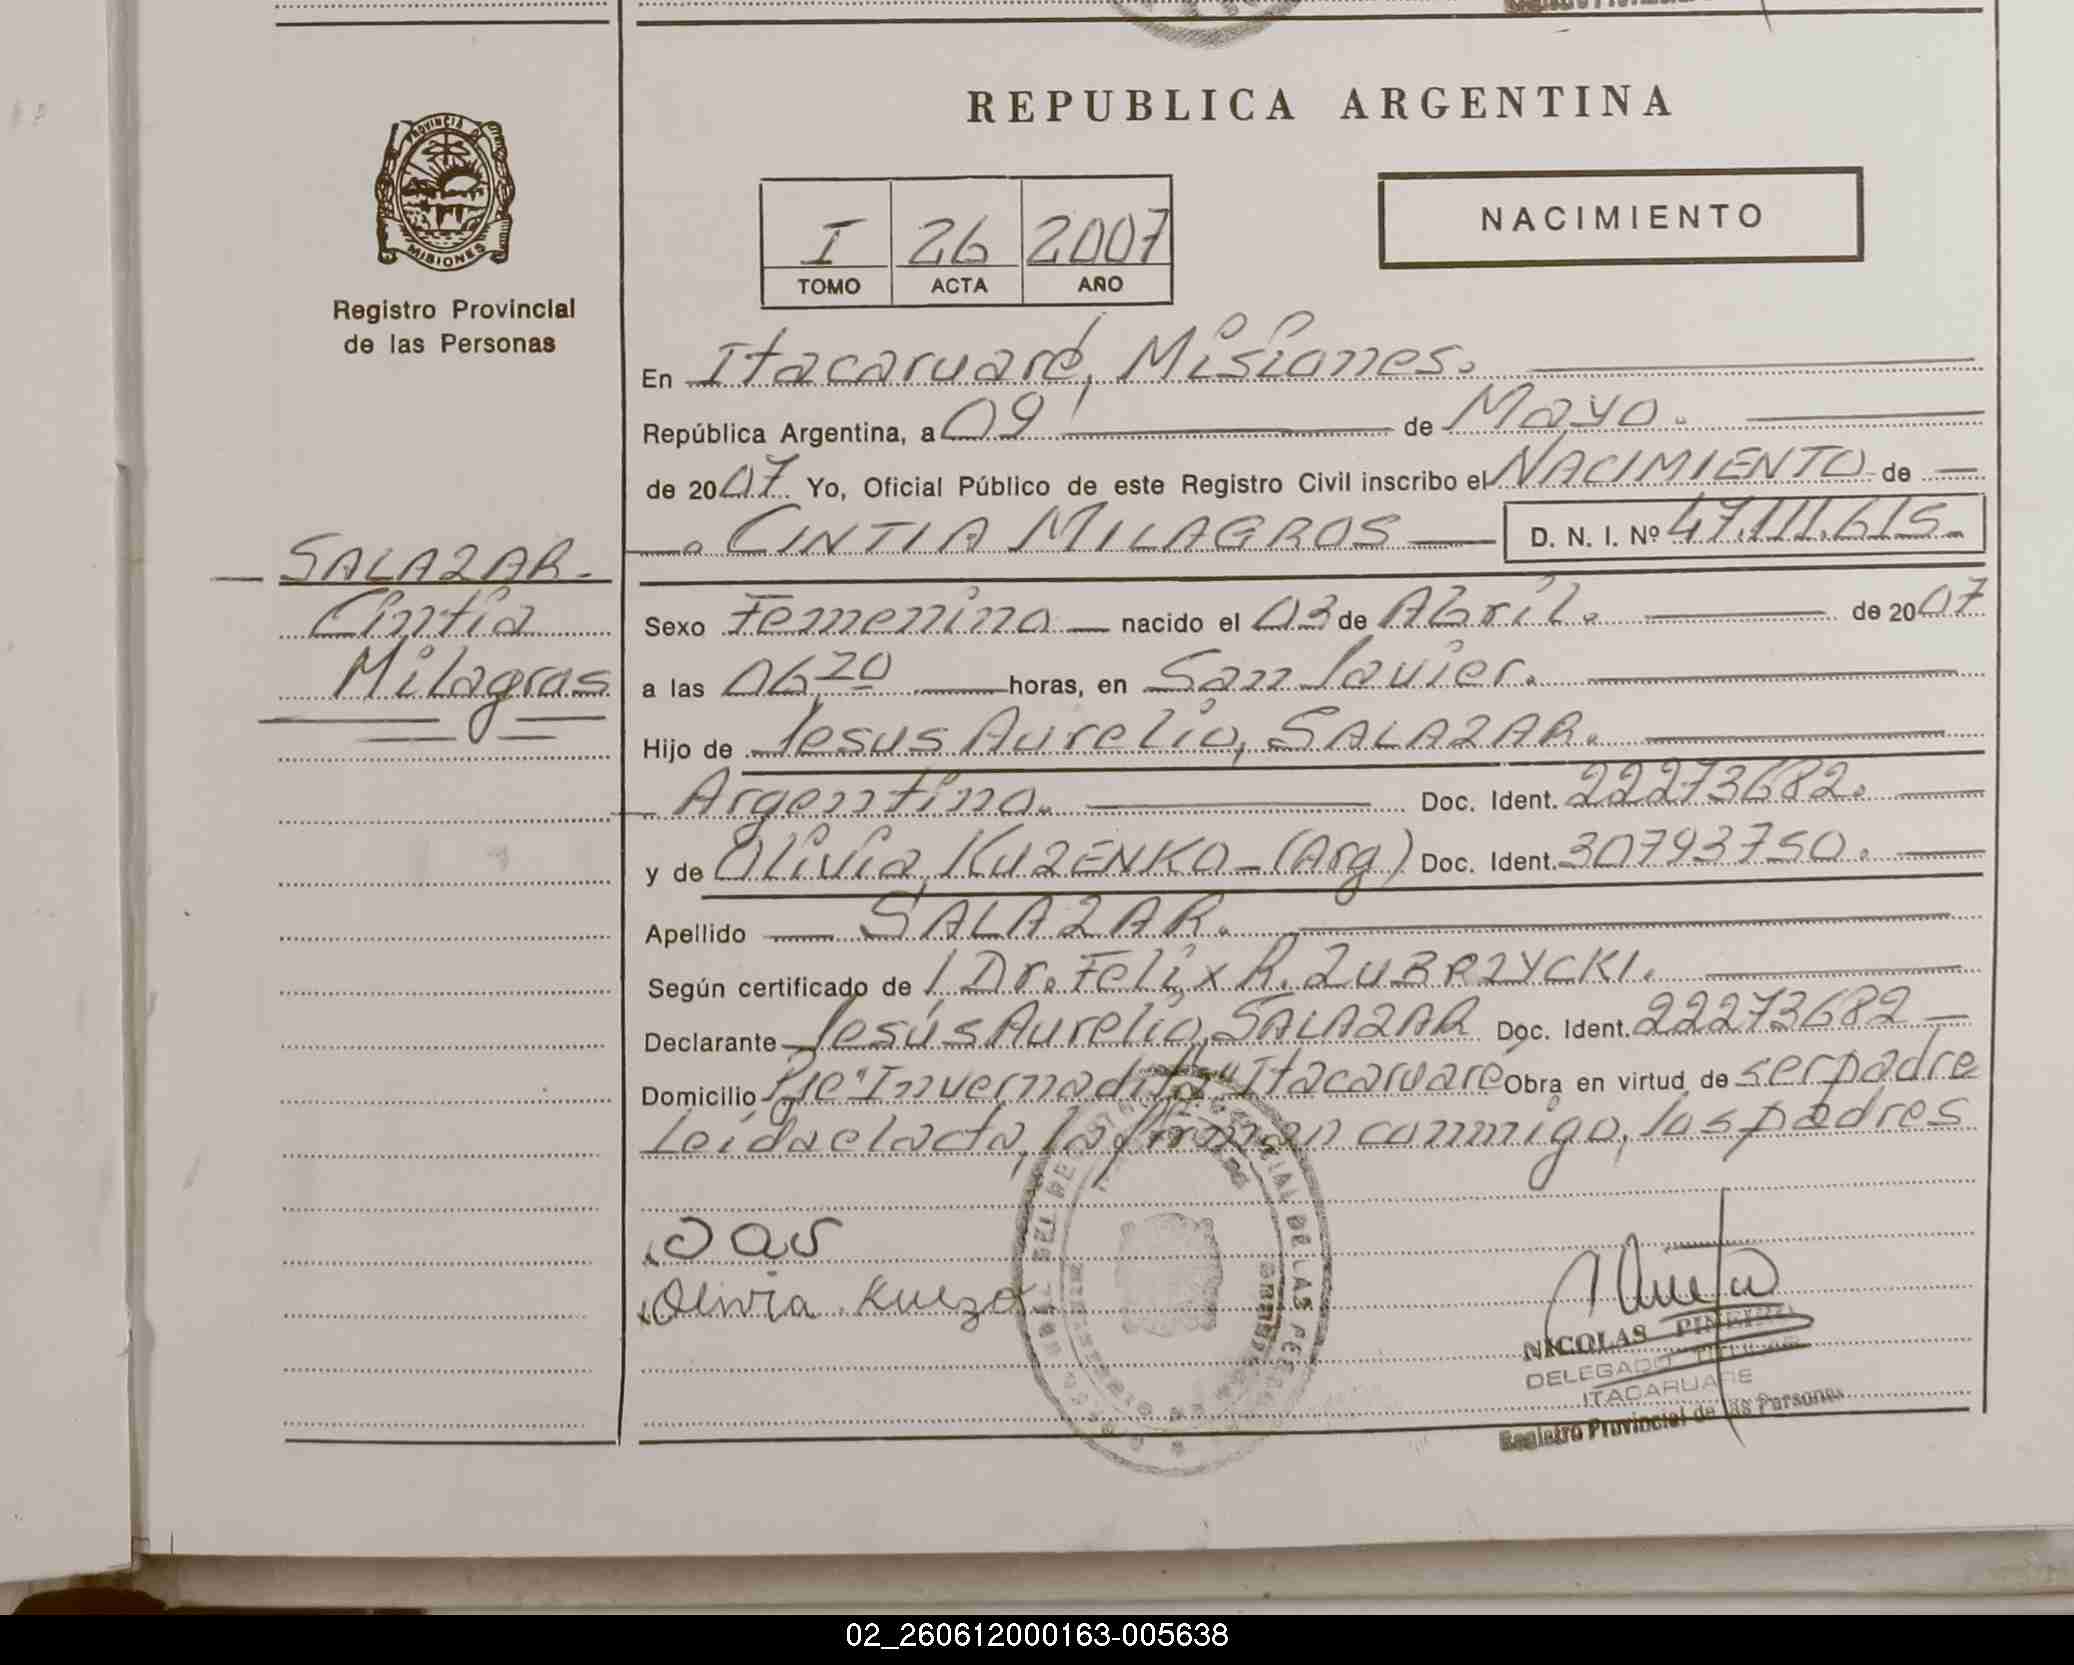 REPUBLICA ARGENTINA
PROVINCIA DE
MISIONES
Registro Provincial
de las Personas
I 26 2007
TOMO ACTA AÑO
NACIMIENTO
En Itacaruaré, Misiones.
República Argentina, a 09 de Mayo.
de 2007 Yo, Oficial Público de este Registro Civil inscribo el NACIMIENTO de
CINTIA MILAGROS D. N. I. Nº 47.111.615.
SALAZAR.
Cintia
Milagros
Sexo Femenino nacido el 03 de Abril. de 2007
a las 06 20 horas, en San Javier.
Hijo de Jesus Aurelio, SALAZAR.
Argentino. Doc. Ident. 22273682.
y de Olivia, KUZENKO - (Arg) Doc. Ident. 30793750.
Apellido SALAZAR.
Según certificado de Dr. Felix R. ZUBRZYCKI.
Declarante Jesús Aurelio, SALAZAR Doc. Ident. 22273682
Domicilio Pje "Invernadita" Itacaruaré Obra en virtud de ser padre
Leida el acta, la firman conmigo, los padres
Olivia
NICOLAS
DELEGADO TITULAR
ITACARUARE
Registro Provincial de las Personas
02_260612000163-005638